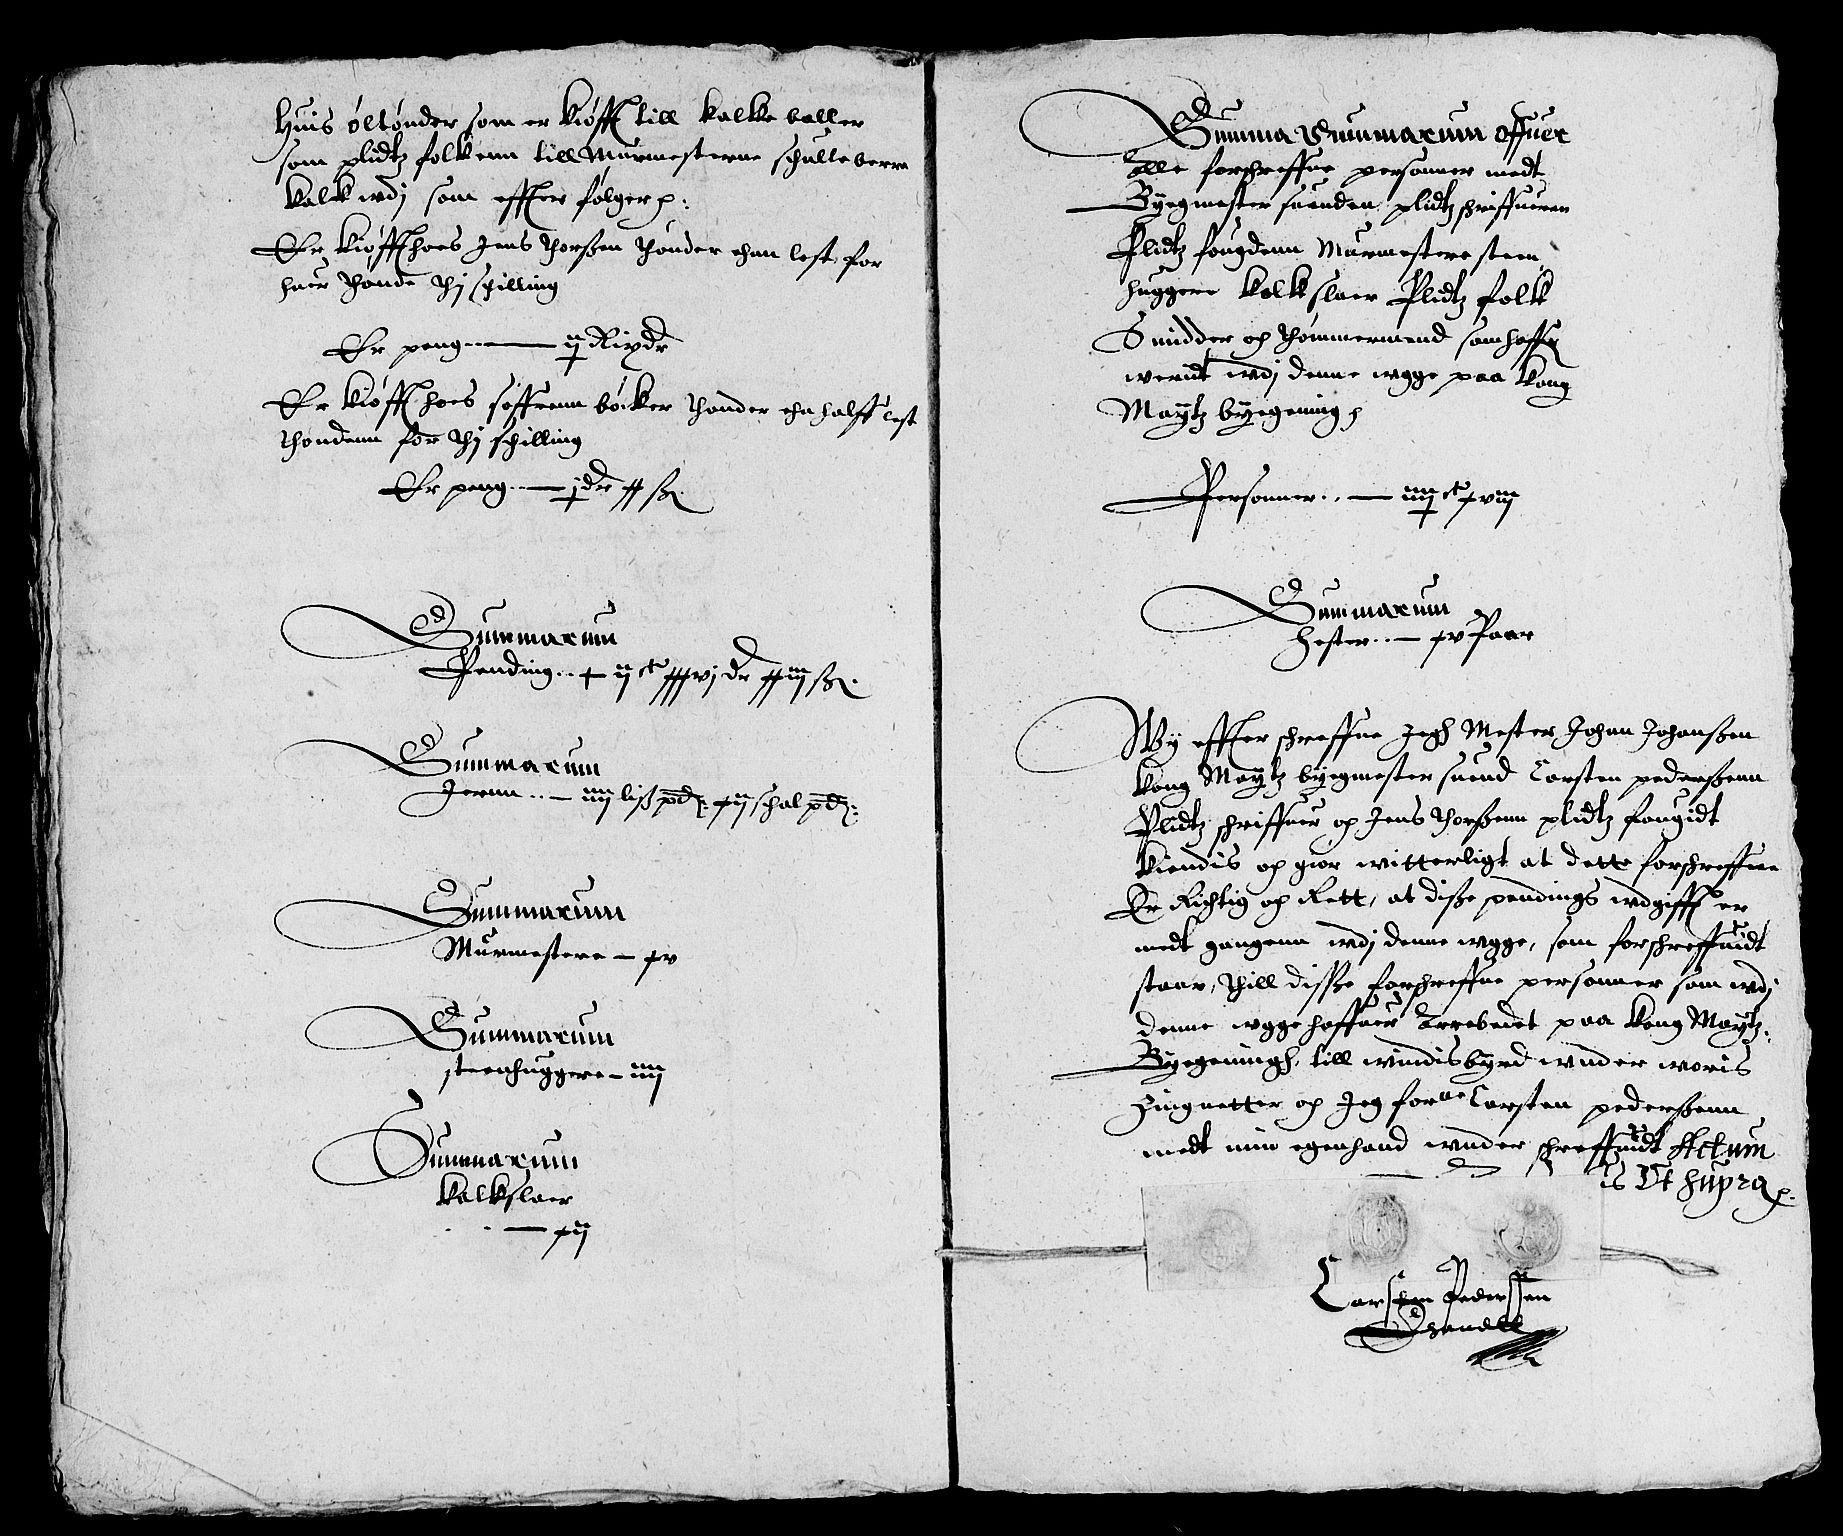 Huis öltönder som er kiøfft till kalke baller
som plidtz folkenn till Murmesterne schulle berre
kalk wdj som effter følger
Er kiøfft hoes Jens Thorßen Thønder ehan lest for
huer Thønde Thj schilling
Er peng ij Rixdr
Er kiøfft hoes søffrenn böcker Thønder ehn halff lest
Thøndenn for Thj schilling
Er peng j dr xx ß
Summarum
Pending ij ct xxxvj dr xxiiij ß
Summarum
Jernn iiij liß pd: xij schal pd:
Summarum
Murmestere xv
Summarum
steenhuggere iiij
Summarum
kalkslaer
xij
Summa Summarum Offuer
Alle forschreffne personner medt
Byegmester suenden plidtz schriffueren
Plidtz fougdenn Murmestere steen
huggere kalkslaer Plidtz folk
Smidder och Thømmermend som haffr
werit wdj denne wgge paa kong
Maytz byegening
Personner iiij ct xviij
Summarum
Hester xv Paar
Wy effter schreffne Jegh Mester Johan Johanßen
kong Maytz byegmester suend Carsten pederßenn
Plidtz schriffuer och Jens Thorßenn plidtz fougidt
kiendis och giør witterligt at dette forschreffne
Er Richtig och Rett, at diße pendings wdgifft er
medt gangenn wdj denne wgge, som forschreffuidt
staar, Thill disse forschreffne personner som wdj
denne wgge haffuer Arrebedet paa kong Maytz:
Byegeningh, till windisbyrd wnder woris
Zingnetter och Jeg forne Carsten pederßenn
medt min egenhand wnder schreffuidt Actum
is Vt supra
Carsten Pederssen